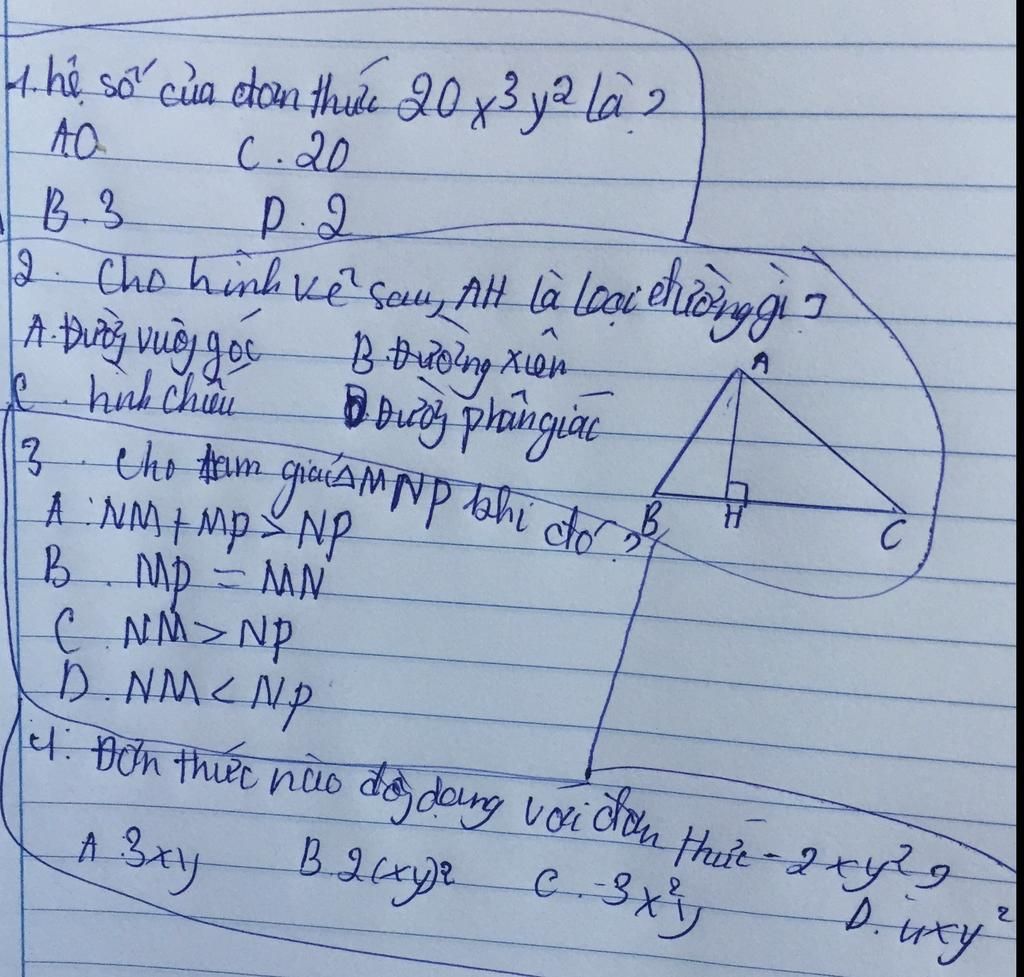 1. hệ số của đơn thức 20x³y² là?
A0 C. 20
B. 3 D. 2
2. Cho hình vẽ sau, AH là loại đường gì?
A. Đường vuông góc B. Đường xiên
C. hình chiếu D Đường phân giác
A
B H C
3. Cho tam giác ΔMNP khi đó?
A. NM + MP > NP
B. MP = MN
C. NM > NP
D. NM < NP
4. Đơn thức nào đồng dạng với đơn thức -2xy²?
A 3xy B. 2(xy)² C. -3x²y D. 4xy²